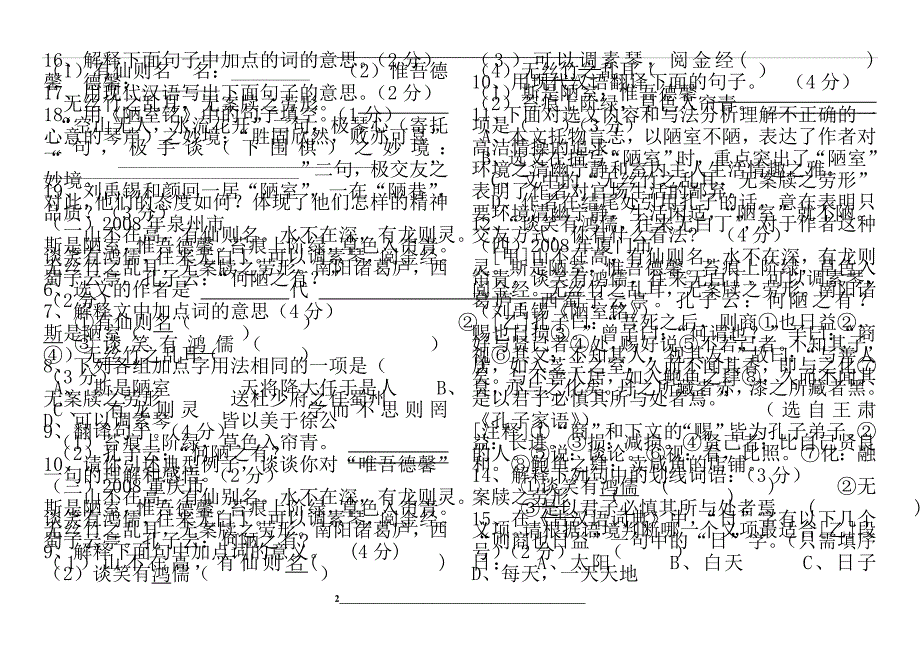 16、解释下面句子中加点的词的意思。(2分)
(1)有仙则名 名：________ (2)惟吾德
馨 德馨：
17、用现代汉语写出下面句子的意思。(2分)
无丝竹之乱耳，无案牍之劳形。
18、用《陋室铭》中的句子填空。(1分)
“空山无人，水流花开”二句，极琴心（寄托
心意的琴声）之妙境；“胜固欣然，败亦可喜
”二句，极手谈（下围棋）之妙境：
“____________，____________”二句，极交友之
妙境
19、刘禹锡和颜回一居“陋室”，一在“陋巷”，
对此，他们的态度如何？体现了他们怎样的精神
品质？（2分）
(二)2008年泉州市
山不在高，有仙则名。水不在深，有龙则灵。
斯是陋室，惟吾德馨。苔痕上阶绿，草色入帘青。
谈笑有鸿儒，往来无白丁。可以调素琴，阅金经。
无丝竹之乱耳，无案牍之劳形。南阳诸葛庐，西
蜀子云亭。孔子云：何陋之有？
6、选文的作者是 ________代________
(2分)
7、解释文中加点词的意思（4分）
①有仙则名（ ） ②
斯是陋室（ ）
③谈笑有鸿儒（ ）
④)无丝竹之乱耳（ ）
8、下列各组加点字用法相同的一项是（ ）
(3分)
A、斯是陋室 天将降大任于是人 B、
无案牍之劳形 送杜少府之任蜀州
C、有龙则灵 学而不思则罔
D、可以调素琴 皆以美于徐公
9、翻译句子。(4分)
(1)苔痕上阶绿，草色入帘青。
(2)孔子云：何陋之有？
10、请你引述典型例子，谈谈你对“唯吾德馨”
一句的理解和感悟。(2分)
(三)2008重庆市
山不在高，有仙别名。水不在深，有龙则灵。
斯是陋室，惟吾德馨。苔痕上阶绿，草色入帘青。
谈笑有鸿儒，往来无白丁。可以调素琴，阅金经。
无丝竹之乱耳，无案牍之劳形。南阳诸葛庐，西
蜀子云亭。孔子云：何陋之有？
9、解释下面句中加点词的意义。（4分)
(1)山不在高，有仙则名（ ）
(2)谈笑有鸿儒（ ）
(3)可以调素琴，阅金经( )
(4)无丝竹之乱耳（ ）
10、用现代汉语翻译下面的句子。（4分）
(1)斯是陋室，惟吾德馨
(2)苔痕上阶绿，草色入帘青
11、下面对选文内容和写法分析理解不正确的一
项是（ ）(3分)
A、本文托物言志，以陋室不陋，表达了作者对
高洁情操的追求。
B、选文在描写“陋室”时，重点突出了“陋室”
环境之清幽宁静和室内主人生活情趣之雅。
C、文中的“无丝竹之乱耳，无案牍之劳形”
表明了作者对官场生活的厌弃
D、作者在结尾处引用孔子的话，意在表明只
要环境清幽宁静，生活闲适，“陋室”就不陋。
12、“谈笑有鸿儒，往来无白丁”，对于作者这种
交友方式，你有什么看法？（4分）
(四)2008年厦门市
[甲]山不在高，有仙则名。水不在深，有龙则
灵。斯是陋室，惟吾德馨。苔痕上阶绿，草色入
帘青。谈笑有鸿儒，往来无白丁。可以调素琴，
阅金经。无丝竹之乱耳，无案牍之劳形。南阳诸
葛庐，西蜀子云亭。孔子云：何陋之有？
(刘禹锡《陋室铭》)
[乙]孔子曰：“吾死之后，则商①也日益②，
赐也日损③。”曾子曰：“何谓也？”子曰：“商
好与贤己者④处，赐好说⑤不若己者。不知其子，
视⑥其父；不知其人，视其友。故曰：“与善人
居，如入芝兰之室，久而不闻其香，即与之化⑦
矣。与不善人居，如入鲍鱼之肆⑧，久而不闻其
臭，亦与之化矣。丹之所藏者赤，漆之所藏者黑。
是以君子必慎其所与处者焉。”
（选自王肃
《孔子家语》）
[注释]①“商”和下文的“赐”皆为孔子弟子。②
益：长进。③损：减损。④贤己者：比自己贤良
的人。⑤说：谈论。⑥视：看，比照。⑦化：融
和。⑧鲍鱼之肆：卖咸鱼的店铺。
14、解释下列句中的划线词语：(3分)
①谈笑有鸿儒 （ ） ②无
案牍之劳形（ ）
③是以君子必慎其所与处者焉（ ）
15、在《古汉语词典》中，“日”字有以下几个
义项，请根据语境判断哪一个义项最适合[乙]段
“则商也日益”一句中的“日”字。(只需填序
号)(2分)（ ）
日： A、太阳 B、白天 C、日子
D、每天，一天天地
2